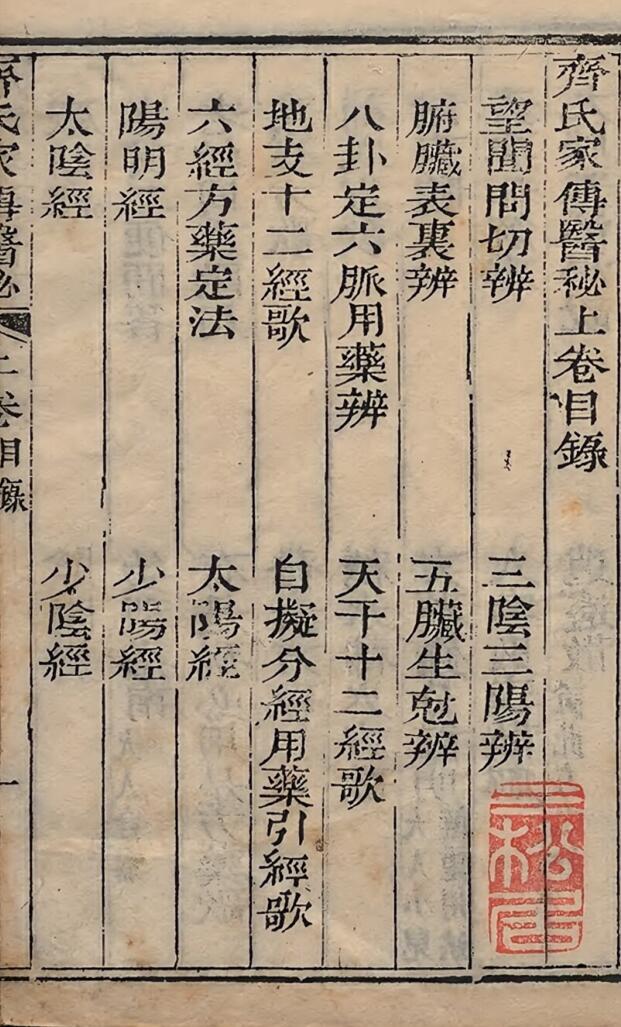 齊氏家傳醫秘上卷目錄
望聞問切辨 三陰三陽辨
腑臟表裏辨 五臟生尅辨
八卦定六脈用藥辨 天干十二經歌
地支十二經歌 自擬分經用藥引經歌
六經方藥定法 太陽經
陽明經 少陽經
太陰經 少陰經
齊氏家傳醫秘 上卷目錄 一
三松居